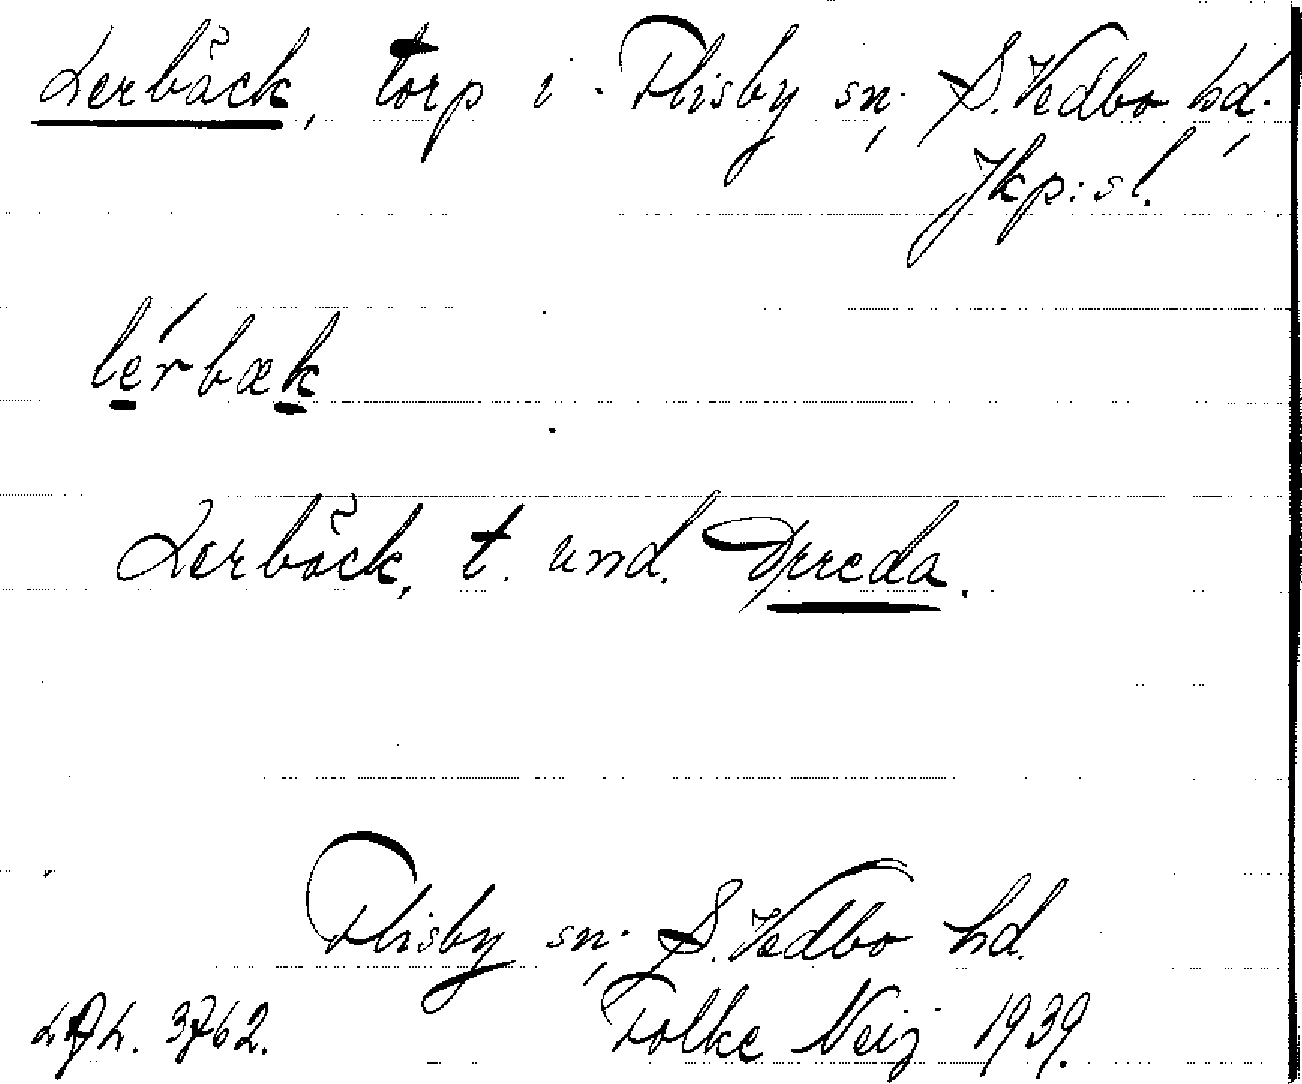 Lerbäck, torp i Flisby sn; S. Vedbo hd.
Jkp:s l.
lérbæk
Lerbäck, t. und.
Flisby sn; S. Vedbo hd.
3762. Folke Neij 1939.